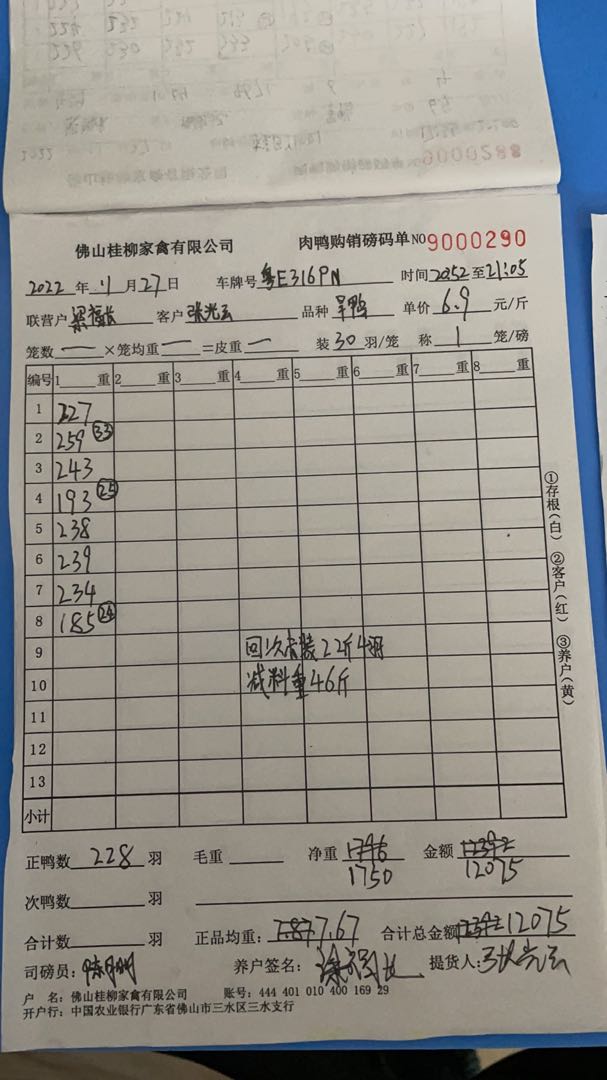 9000288
佛山桂柳家禽有限公司 肉鸭购销磅码单 NO 9000290
2022 年 11 月 27 日 车牌号 粤E316PN 时间 2052 至 21:05
联营户 客户 张光云 品种 单价 6.9 元/斤
笼数 一 ×笼均重 一 =皮重 一 装 30 羽/笼 称 1 笼/磅
编号 1 重 2 重 3 重 4 重 5 重 6 重 7 重 8 重
1 227
2 259 33
3 243
4 193 25
5 238
6 239
7 234
8 185 24
9 回次 装22斤4羽
10 减料重46斤
11
12
13
小计
①存根(白) ②客户(红) ③养户(黄)
正鸭数 228 羽 毛重 净重 1796 金额 12392
1750 12075
次鸭数 羽
合计数 羽 正品均重: 7.87 7.67 合计总金额 12392 12075
司磅员: 养户签名: 提货人: 张光云
户 名: 佛山桂柳家禽有限公司 账号: 444 401 010 400 169 29
开户行: 中国农业银行广东省佛山市三水区三水支行